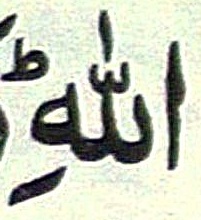 اللهِ ط